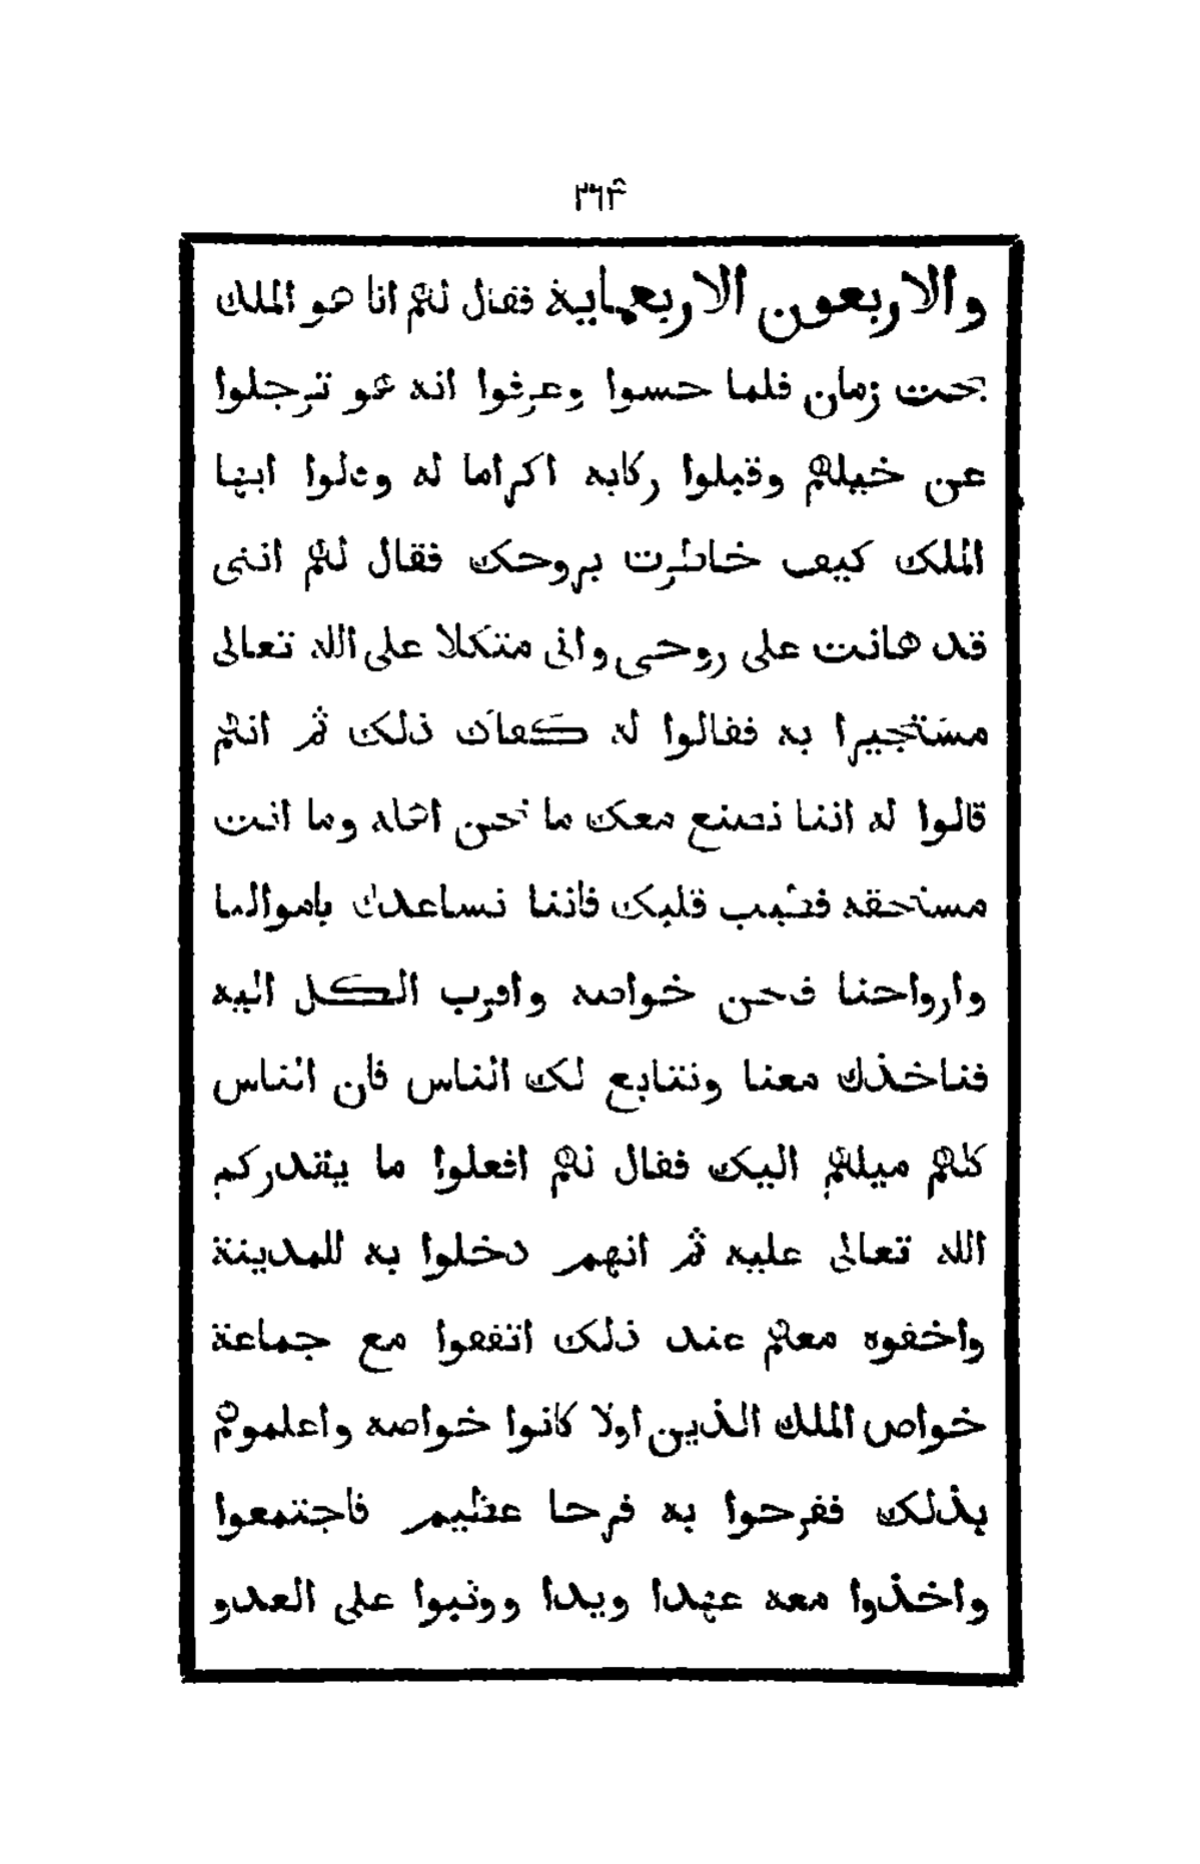 ٣٦٤
والاربعون الاربعماية فقال لهم انا هو الملك
بخت زمان فلما حسوا وعرفوا انه هو ترجلوا
عن خيلهم وقبلوا ركابه اكراما له وقالوا ايها
الملك كيف خاطرت بروحك فقال لهم اننى
قد هانت على روحى وانى متكلا على الله تعالى
مستجيرا به فقالوا له كفاك ذلك ثم انهم
قالوا له اننا نصنع معك ما نحن اهله وما انت
مستحقه فطيب قلبك فاننا نساعدك باموالنا
وارواحنا فنحن خواصه واقرب الكل اليه
فناخذك معنا ونتابع لك الناس فان الناس
كلهم ميلهم اليك فقال لهم افعلوا ما يقدركم
الله تعالى عليه ثم انهم دخلوا به للمدينة
واخفوه معهم عند ذلك اتفقوا مع جماعة
خواص الملك الذين اولا كانوا خواصه واعلموهم
بذلك ففرحوا به فرحا عظيم فاجتمعوا
واخذوا معه عهدا ويدا ووثبوا على العدو